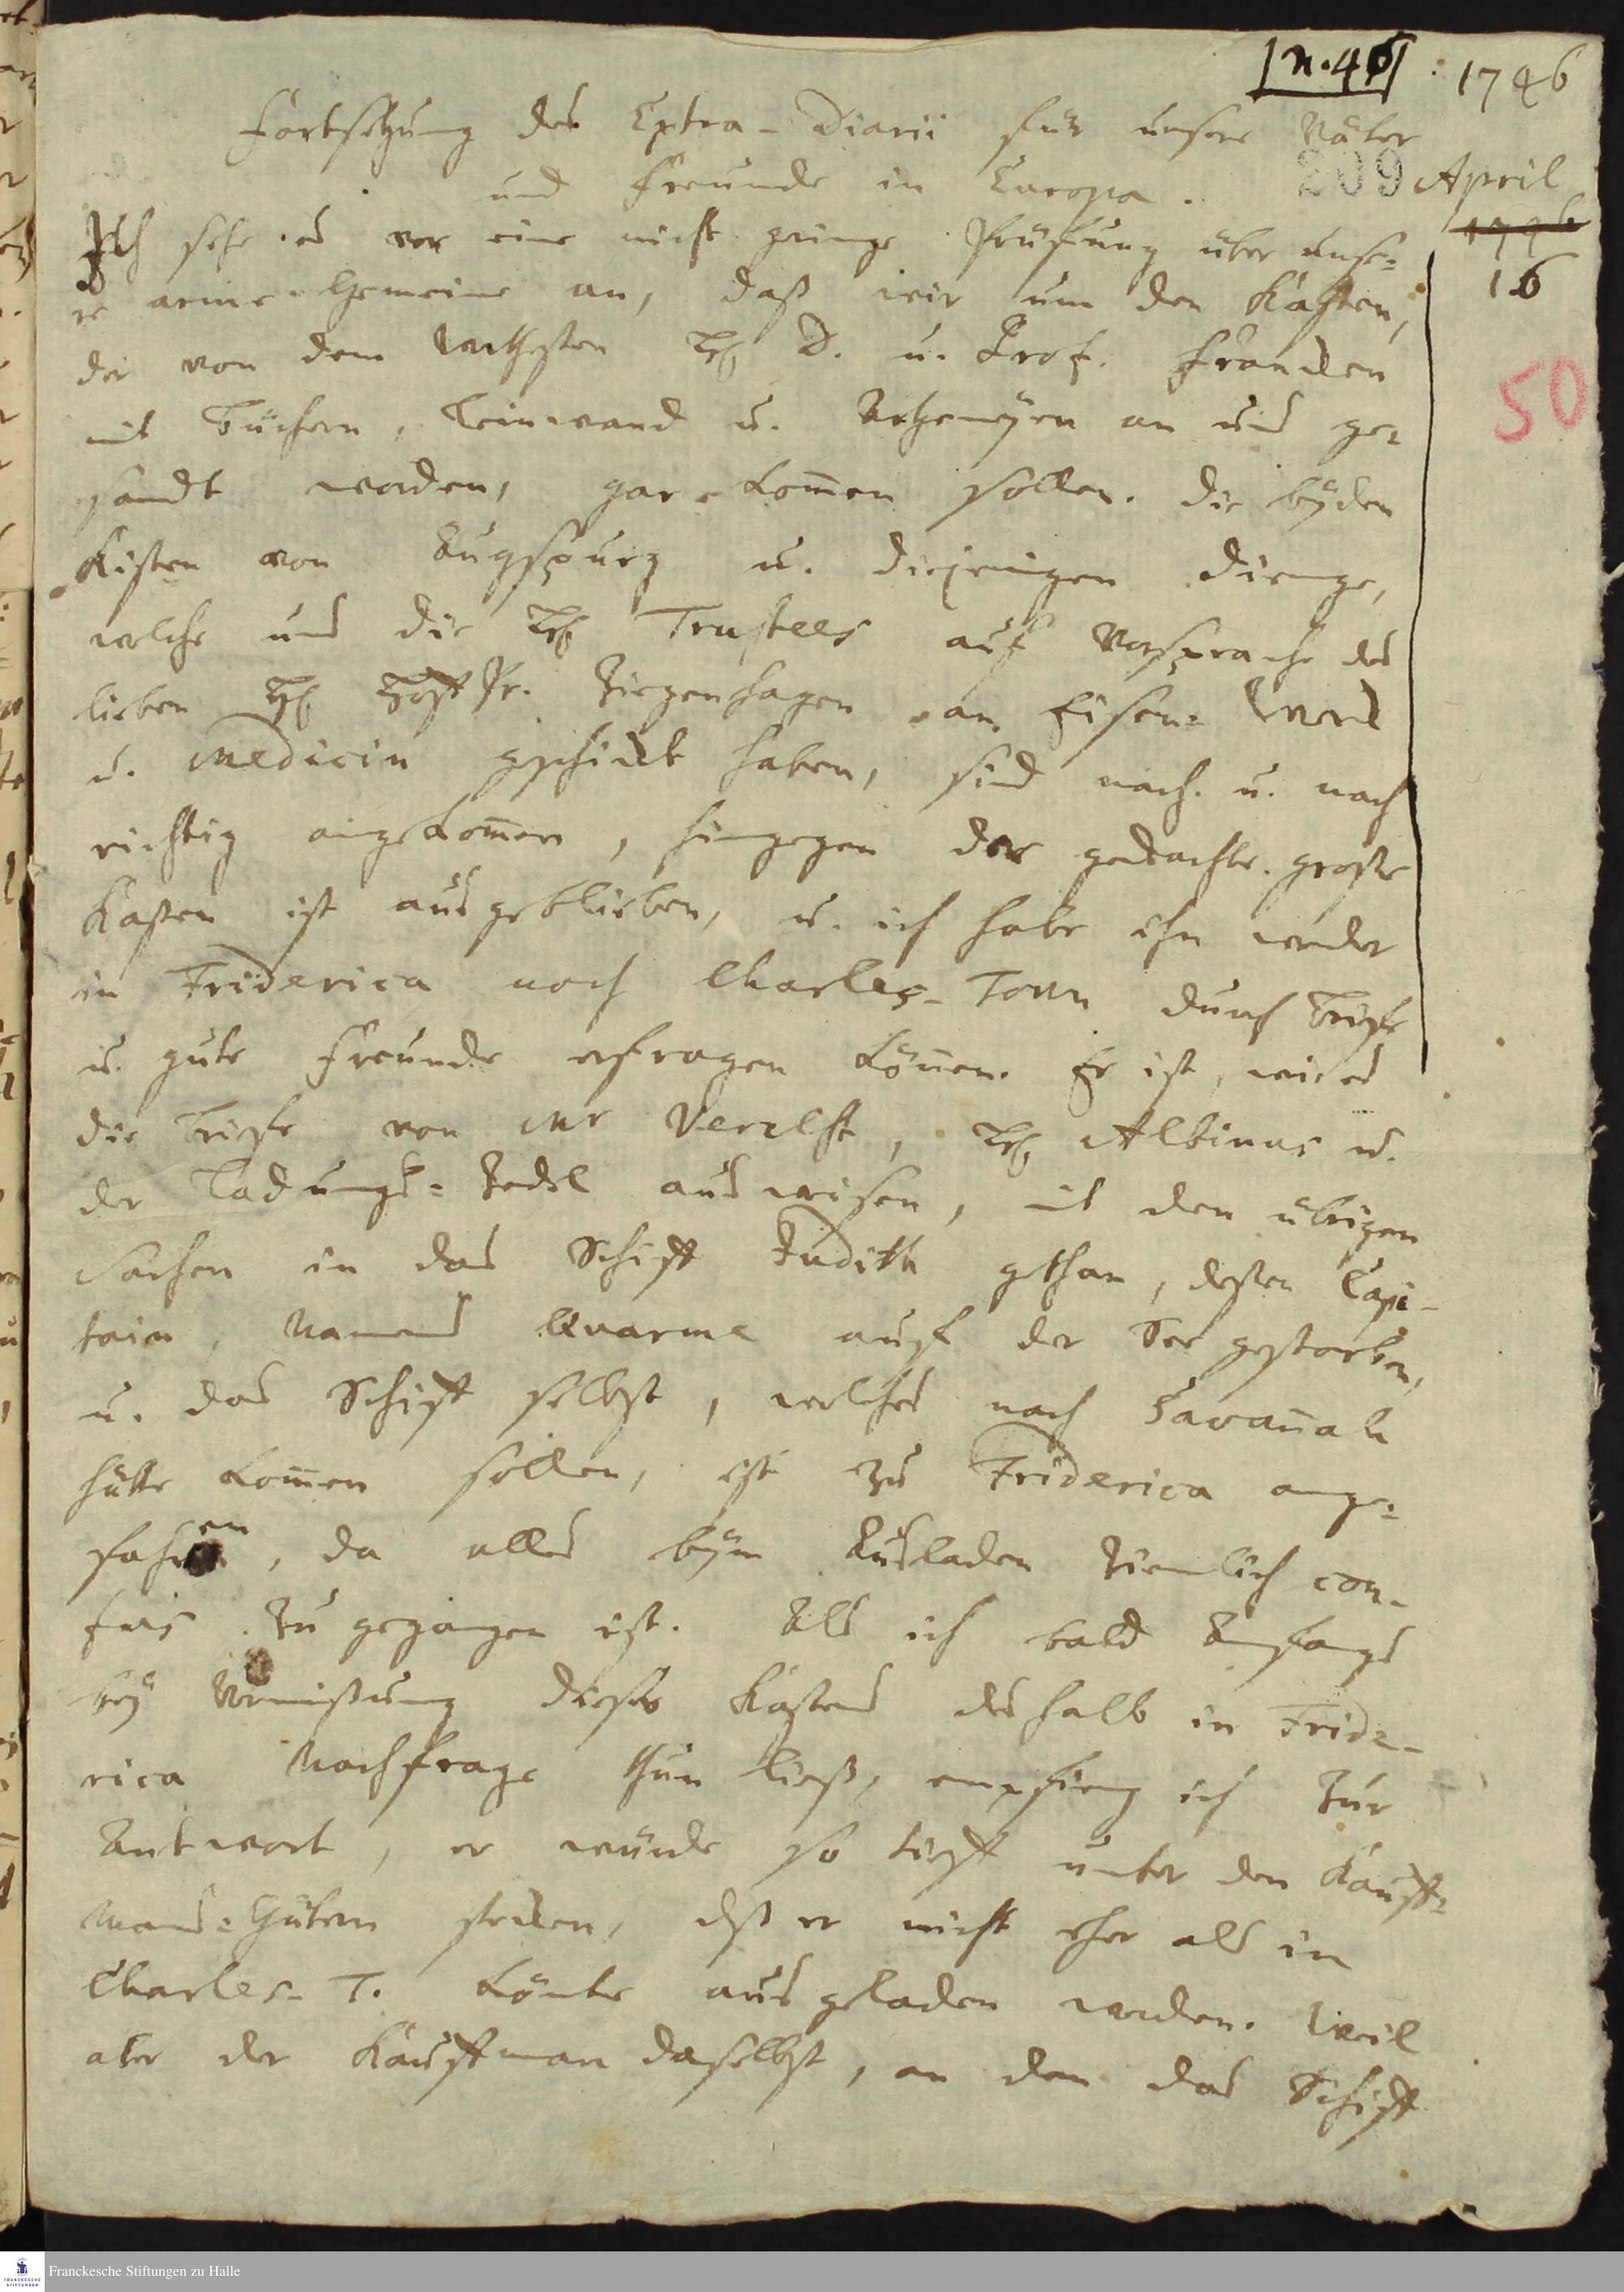 [n. 46] 1746
Fortsetzung des Extra-Diarii für unsere Väter
und Freunde in Europa.
209 April
1746
16
50
Ich sehe es vor eine nicht geringe Prüfung über unse=
re arme Gemeine an, daß wir um den Kasten,
der von dem Herrn D. u. Prof. Francken
mit Büchern, Leinwand u. Artzeneyen an uns ge=
sandt worden, gar kom̅en sollen. Die beyden
Kisten von Augspurg u. diejenigen Dinge,
welche uns die Herrn Trustees auf Vorsprache des
lieben Herrn Hofpr. Ziegenhagen an Eisen=Werck
u. Medicin geschickt haben, sind nach u. nach
richtig angekom̅en, hingegen der gedachte große
Kasten ist ausgeblieben, u. ich habe ihn weder
in Friderica noch Charles-Town durch Briefe
u. gute Freunde erfragen kön̅en. Er ist, wie es
die Briefe von Mr Verelst, Herrn Albinus u.
der Ladungs=Zedel ausweisen, mit den übrigen
Sachen in das Schiff Judith gethan, deßen Capi-
tain, Namens Quarme auf der See gestorben,
u. das Schiff selbst, welches nach Savan̅ah
hätte kom̅en sollen, ist zu Friderica ange=
fahren, da alles beym Ausladen ziemlich con-
fus zu gegangen ist. Als ich bald Anfangs
bey Vermißung dieses Kastens deshalb in Fride-
rica Nachfrage thun ließ, empfieng ich zur
Antwort, er würde so tieff unter den Kauff=
manns=Gütern stecken, daß er nicht eher als in
Charles-T. könte ausgeladen werden. Weil
aber der Kauffman daselbst, an den das Schiff
Franckesche Stiftungen zu Halle